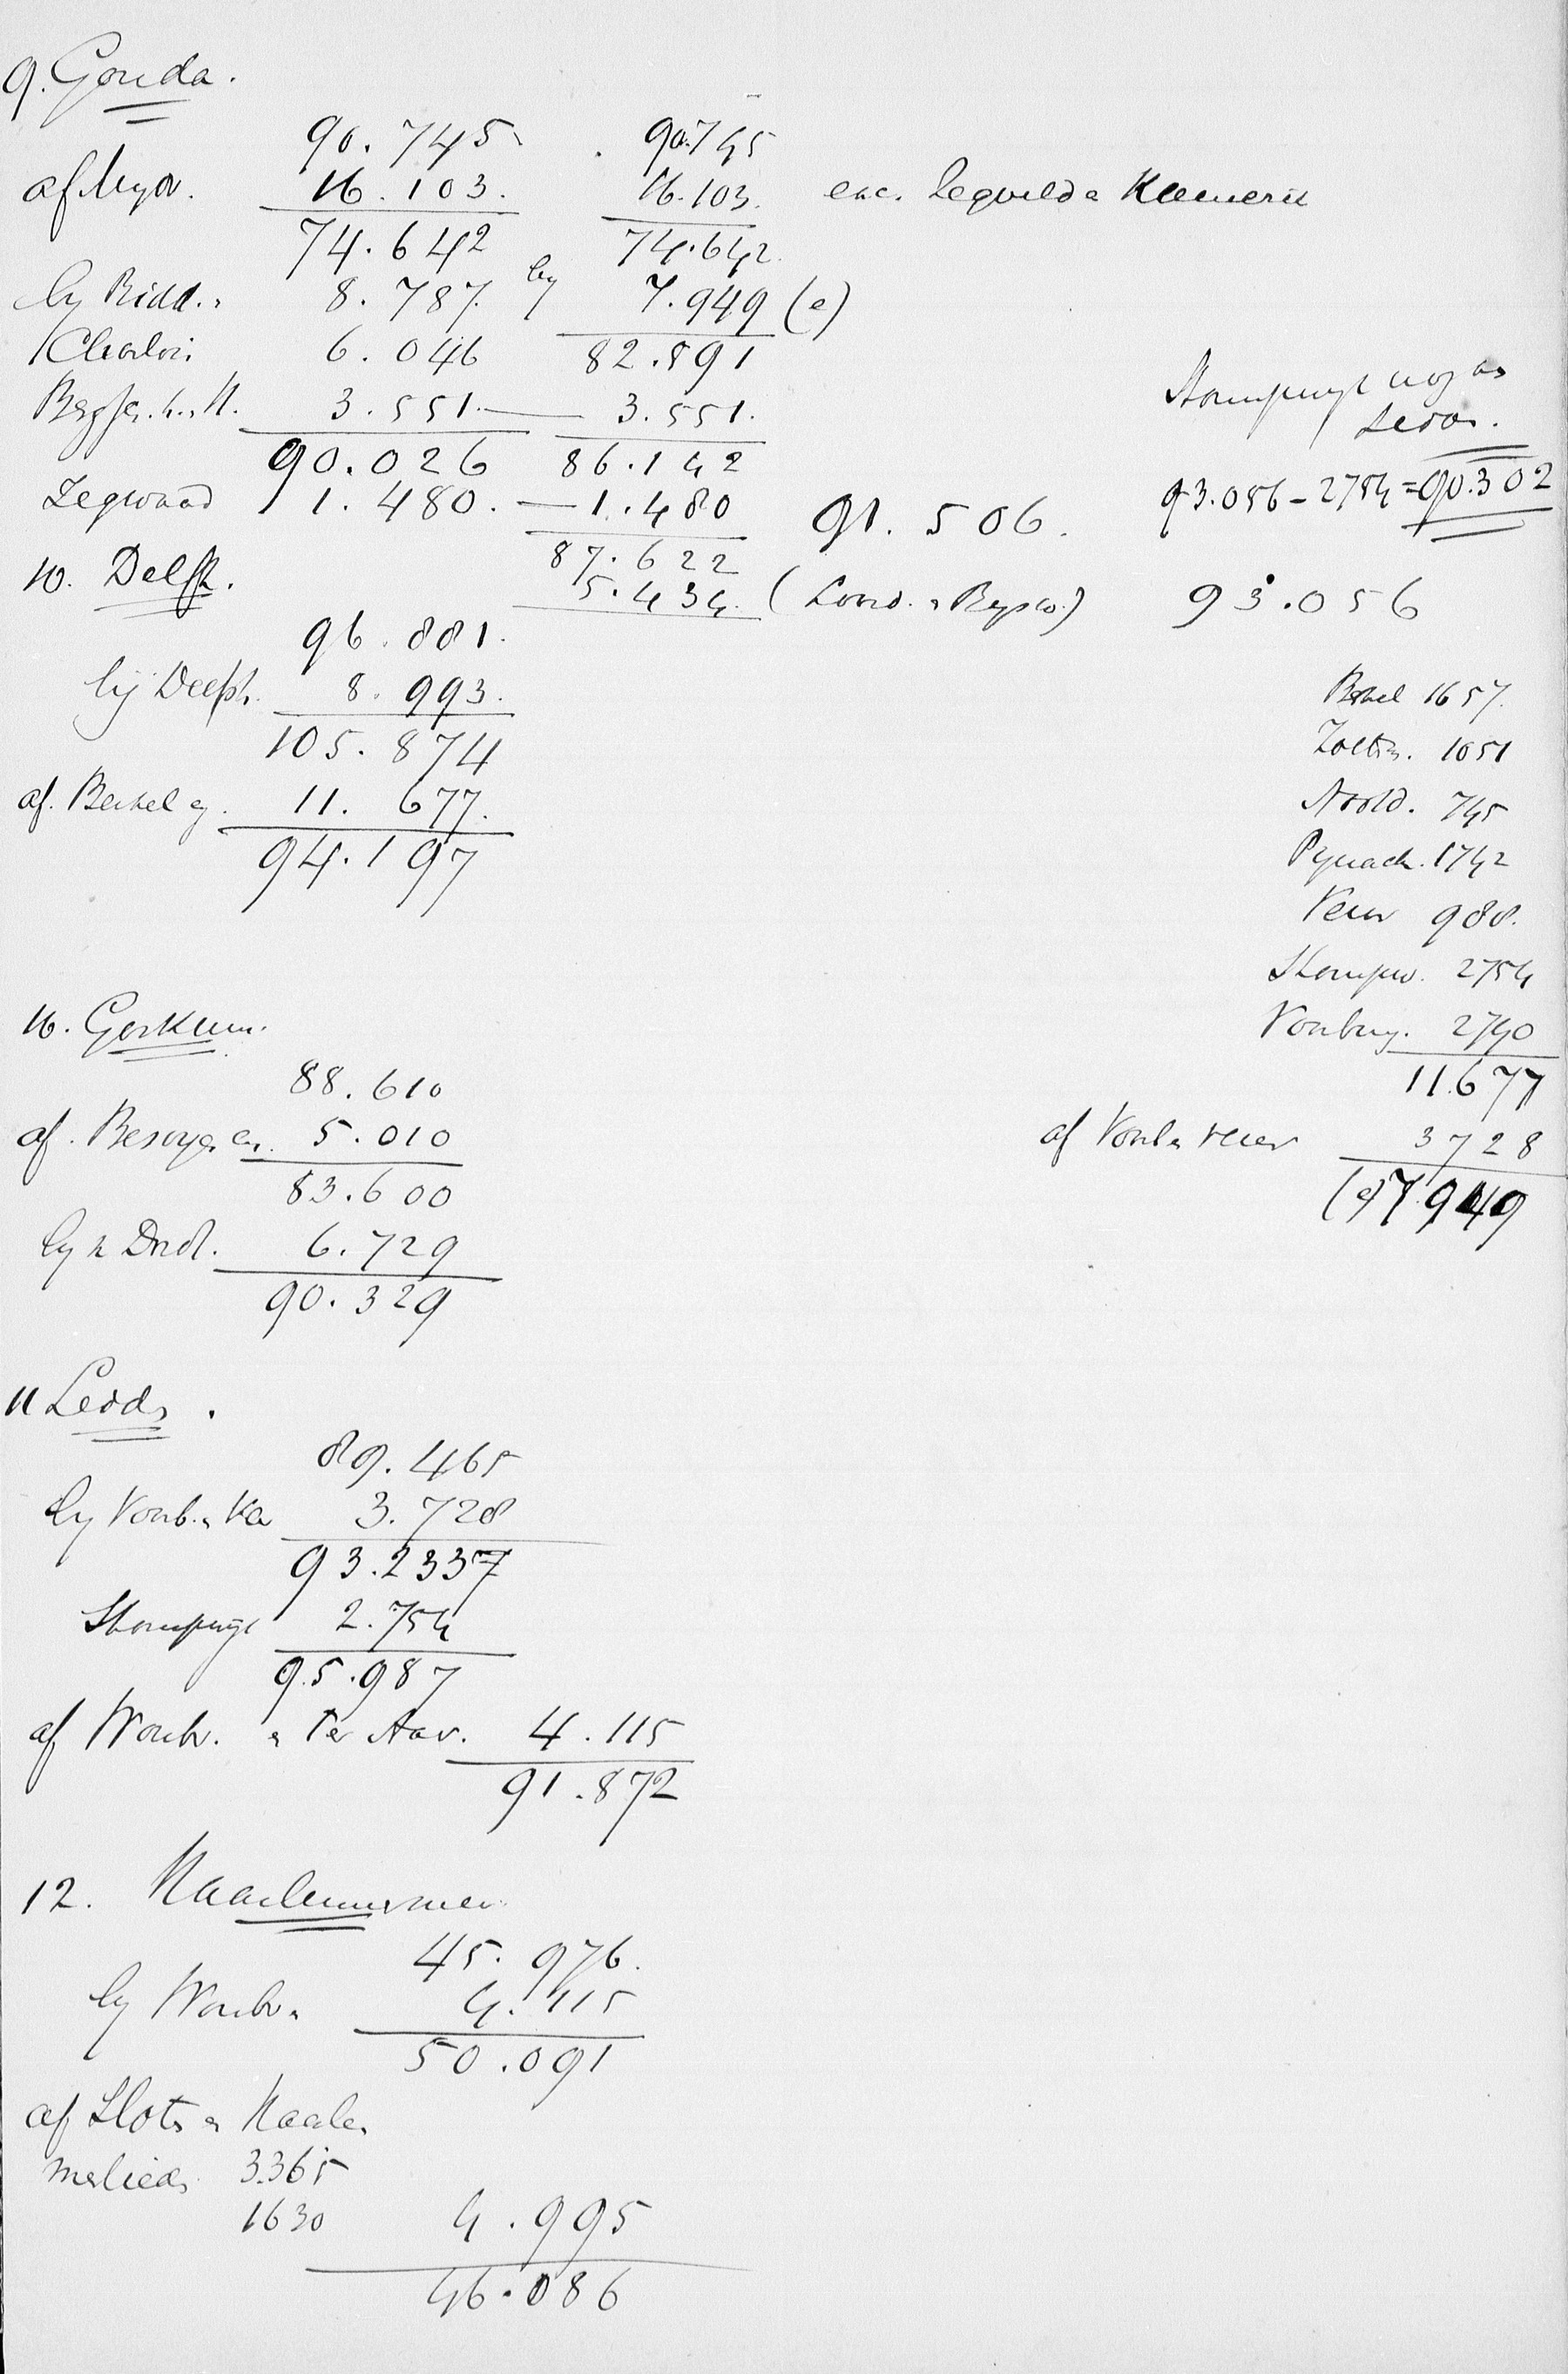 9. Gouda.
90.745 90.745
af 16.103. 16.103. en
74.642 74.642
by Ridd. 8.787. by 7.949 (e)
6.046 82.591
3.551. — 3.551.
90.026 86.142
Zegwaard 1.480. — 1.480 91.506.
87.622
5.434. (
Stompwijk nog
93.056 - 2754 = 90.302
93.056
10. Delft.
96.881.
bij Delfsh. 8.993.
105.874
af. Berkel 11.677.
94.197
Berkel 1657.
Zoeterm. 1051
Nootd. 745
Pynack. 1742
Veur 988.
Stompw. 2754
Voorburg. 2740
11.677
af Voorb. Veur 3728
(e) 7.949
16. Gorkum.
88.610
af. Besoyen 5.010
83.600
by Dord. 6.729
90.329
11 Leid.
89.465
by Voorb. 3.728
93.2337
Stompwijk 2.754
95.987
af Woub. Ter Aar. 4.115
91.872
12. Haarlemmermeer
45.976.
by Woub. 4.115
50.091
af Slot. Haarlem
merliede 3.365
1630 4.995
46.086